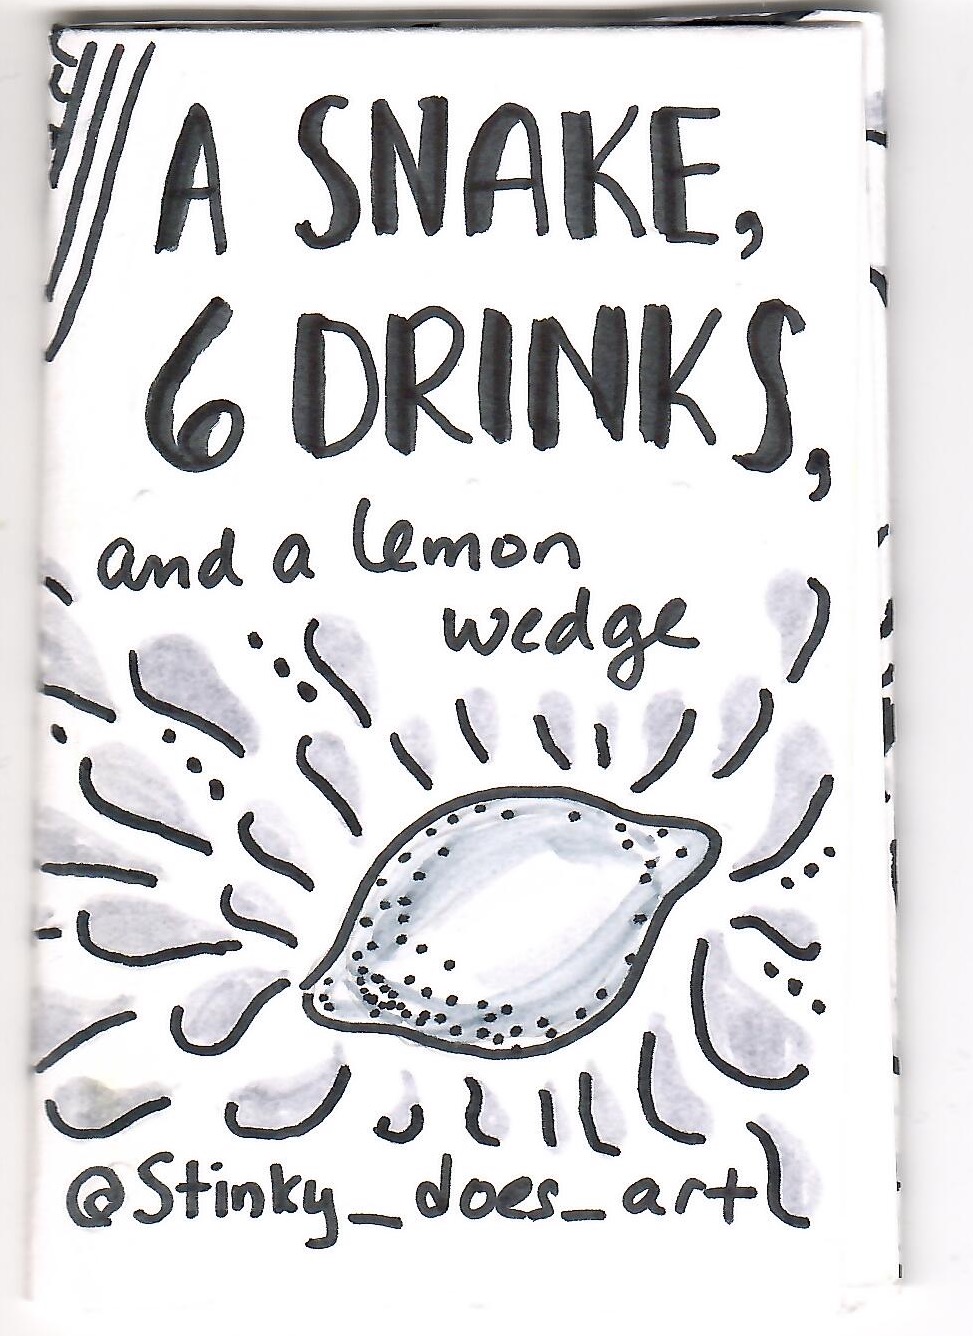 A SNAKE,
6 DRINKS,
and a lemon
wedge
@Stinky_does_art